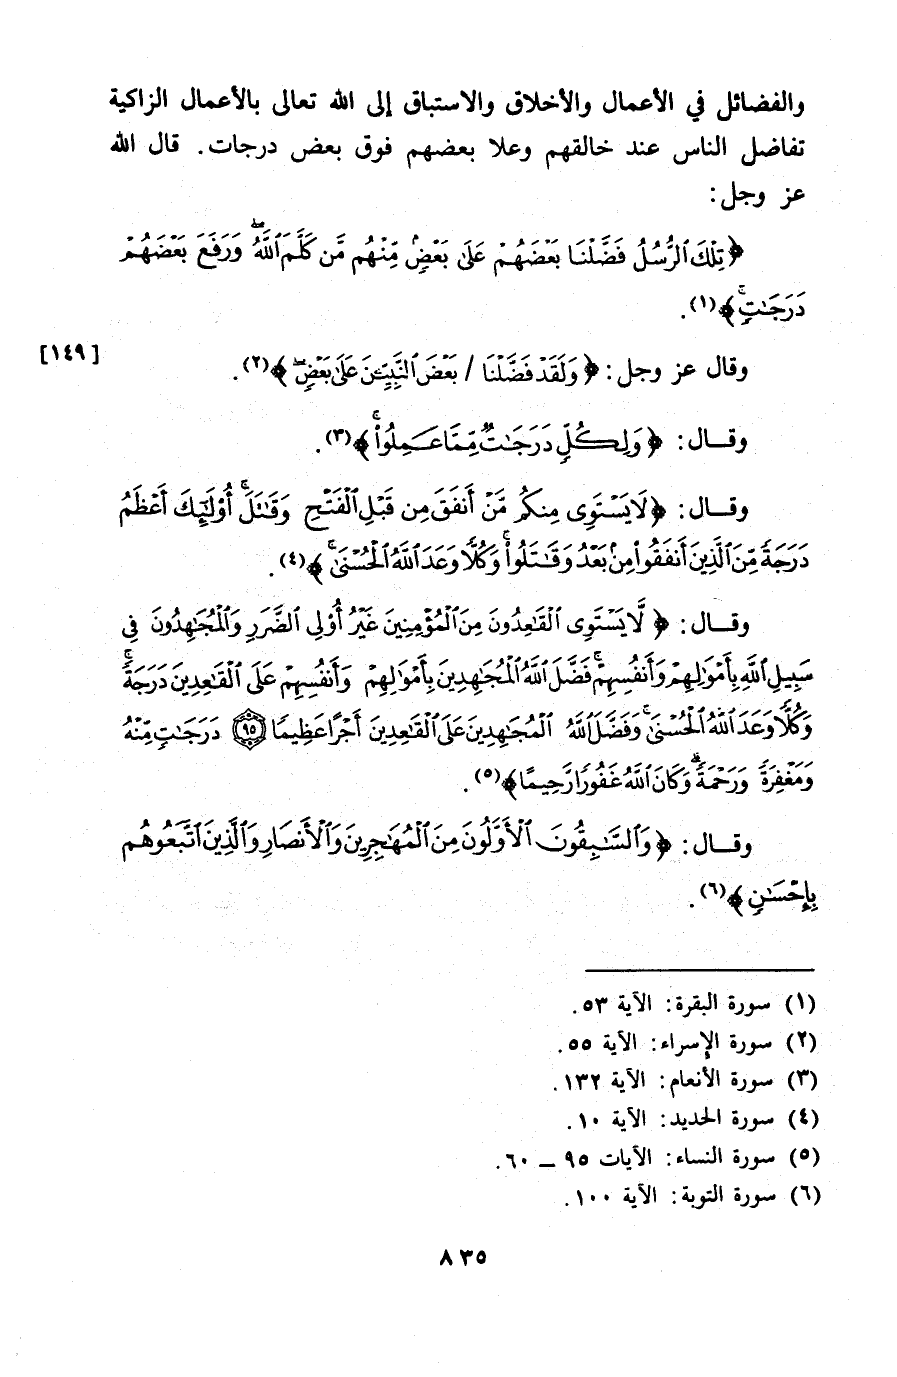 والفضائل في الأعمال والأخلاق والاستباق إلى الله تعالى بالأعمال الزاكية
تفاضل الناس عند خالقهم وعلا بعضهم فوق بعض درجات. قال الله
عز وجل:
﴿ تِلْكَ ٱلرُّسُلُ فَضَّلْنَا بَعْضَهُمْ عَلَىٰ بَعْضٍۘ مِّنْهُم مَّن كَلَّمَ ٱللَّهُۖ وَرَفَعَ بَعْضَهُمْ
دَرَجَٰتٍۚ ﴾(١).
وقال عز وجل: ﴿ وَلَقَدْ فَضَّلْنَا / بَعْضَ ٱلنَّبِيِّـۧنَ عَلَىٰ بَعْضٍۖ ﴾(٢). [١٤٩]
وقـال: ﴿ وَلِكُلٍّ دَرَجَٰتٌ مِّمَّا عَمِلُوا۟ۚ ﴾(٣).
وقـال: ﴿ لَا يَسْتَوِى مِنكُم مَّنْ أَنفَقَ مِن قَبْلِ ٱلْفَتْحِ وَقَٰتَلَۚ أُو۟لَٰٓئِكَ أَعْظَمُ
دَرَجَةً مِّنَ ٱلَّذِينَ أَنفَقُوا۟ مِنۢ بَعْدُ وَقَٰتَلُوا۟ۚ وَكُلًّا وَعَدَ ٱللَّهُ ٱلْحُسْنَىٰۚ ﴾(٤).
وقـال: ﴿ لَّا يَسْتَوِى ٱلْقَٰعِدُونَ مِنَ ٱلْمُؤْمِنِينَ غَيْرُ أُو۟لِى ٱلضَّرَرِ وَٱلْمُجَٰهِدُونَ فِى
سَبِيلِ ٱللَّهِ بِأَمْوَٰلِهِمْ وَأَنفُسِهِمْۚ فَضَّلَ ٱللَّهُ ٱلْمُجَٰهِدِينَ بِأَمْوَٰلِهِمْ وَأَنفُسِهِمْ عَلَى ٱلْقَٰعِدِينَ دَرَجَةًۚ
وَكُلًّا وَعَدَ ٱللَّهُ ٱلْحُسْنَىٰۚ وَفَضَّلَ ٱللَّهُ ٱلْمُجَٰهِدِينَ عَلَى ٱلْقَٰعِدِينَ أَجْرًا عَظِيمًا ۝٩٥ دَرَجَٰتٍ مِّنْهُ
وَمَغْفِرَةً وَرَحْمَةًۚ وَكَانَ ٱللَّهُ غَفُورًا رَّحِيمًا ﴾(٥).
وقـال: ﴿ وَٱلسَّٰبِقُونَ ٱلْأَوَّلُونَ مِنَ ٱلْمُهَٰجِرِينَ وَٱلْأَنصَارِ وَٱلَّذِينَ ٱتَّبَعُوهُم
بِإِحْسَٰنٍ ﴾(٦).
(١) سورة البقرة: الآية ٥٣.
(٢) سورة الإسراء: الآية ٥٥.
(٣) سورة الأنعام: الآية ١٣٢.
(٤) سورة الحديد: الآية ١٠.
(٥) سورة النساء: الآيات ٩٥ ــ ٦٠.
(٦) سورة التوبة: الآية ١٠٠.
٨٣٥